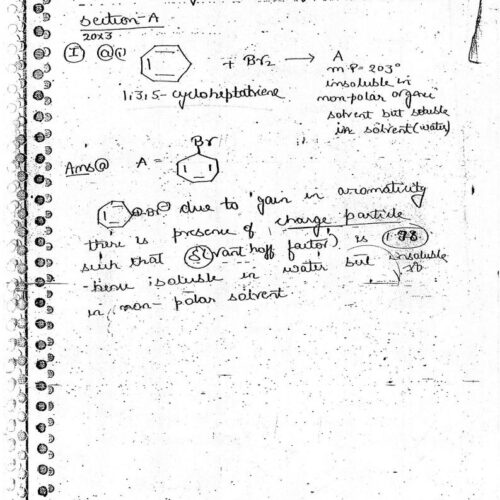 Section-A
20x3
I a i
+ Br2 → A
m.P = 203°
insoluble in
non-polar organi
solvent but soluble
in solvent (water)
1,3,5-cycloheptatriene
Br
Ans a A =
⊕ Br ⊖ due to gain in aromaticity
there is presence of charge particle
such that (vant hoff factor) is
soluble in water but insoluble
in non-polar solvent.